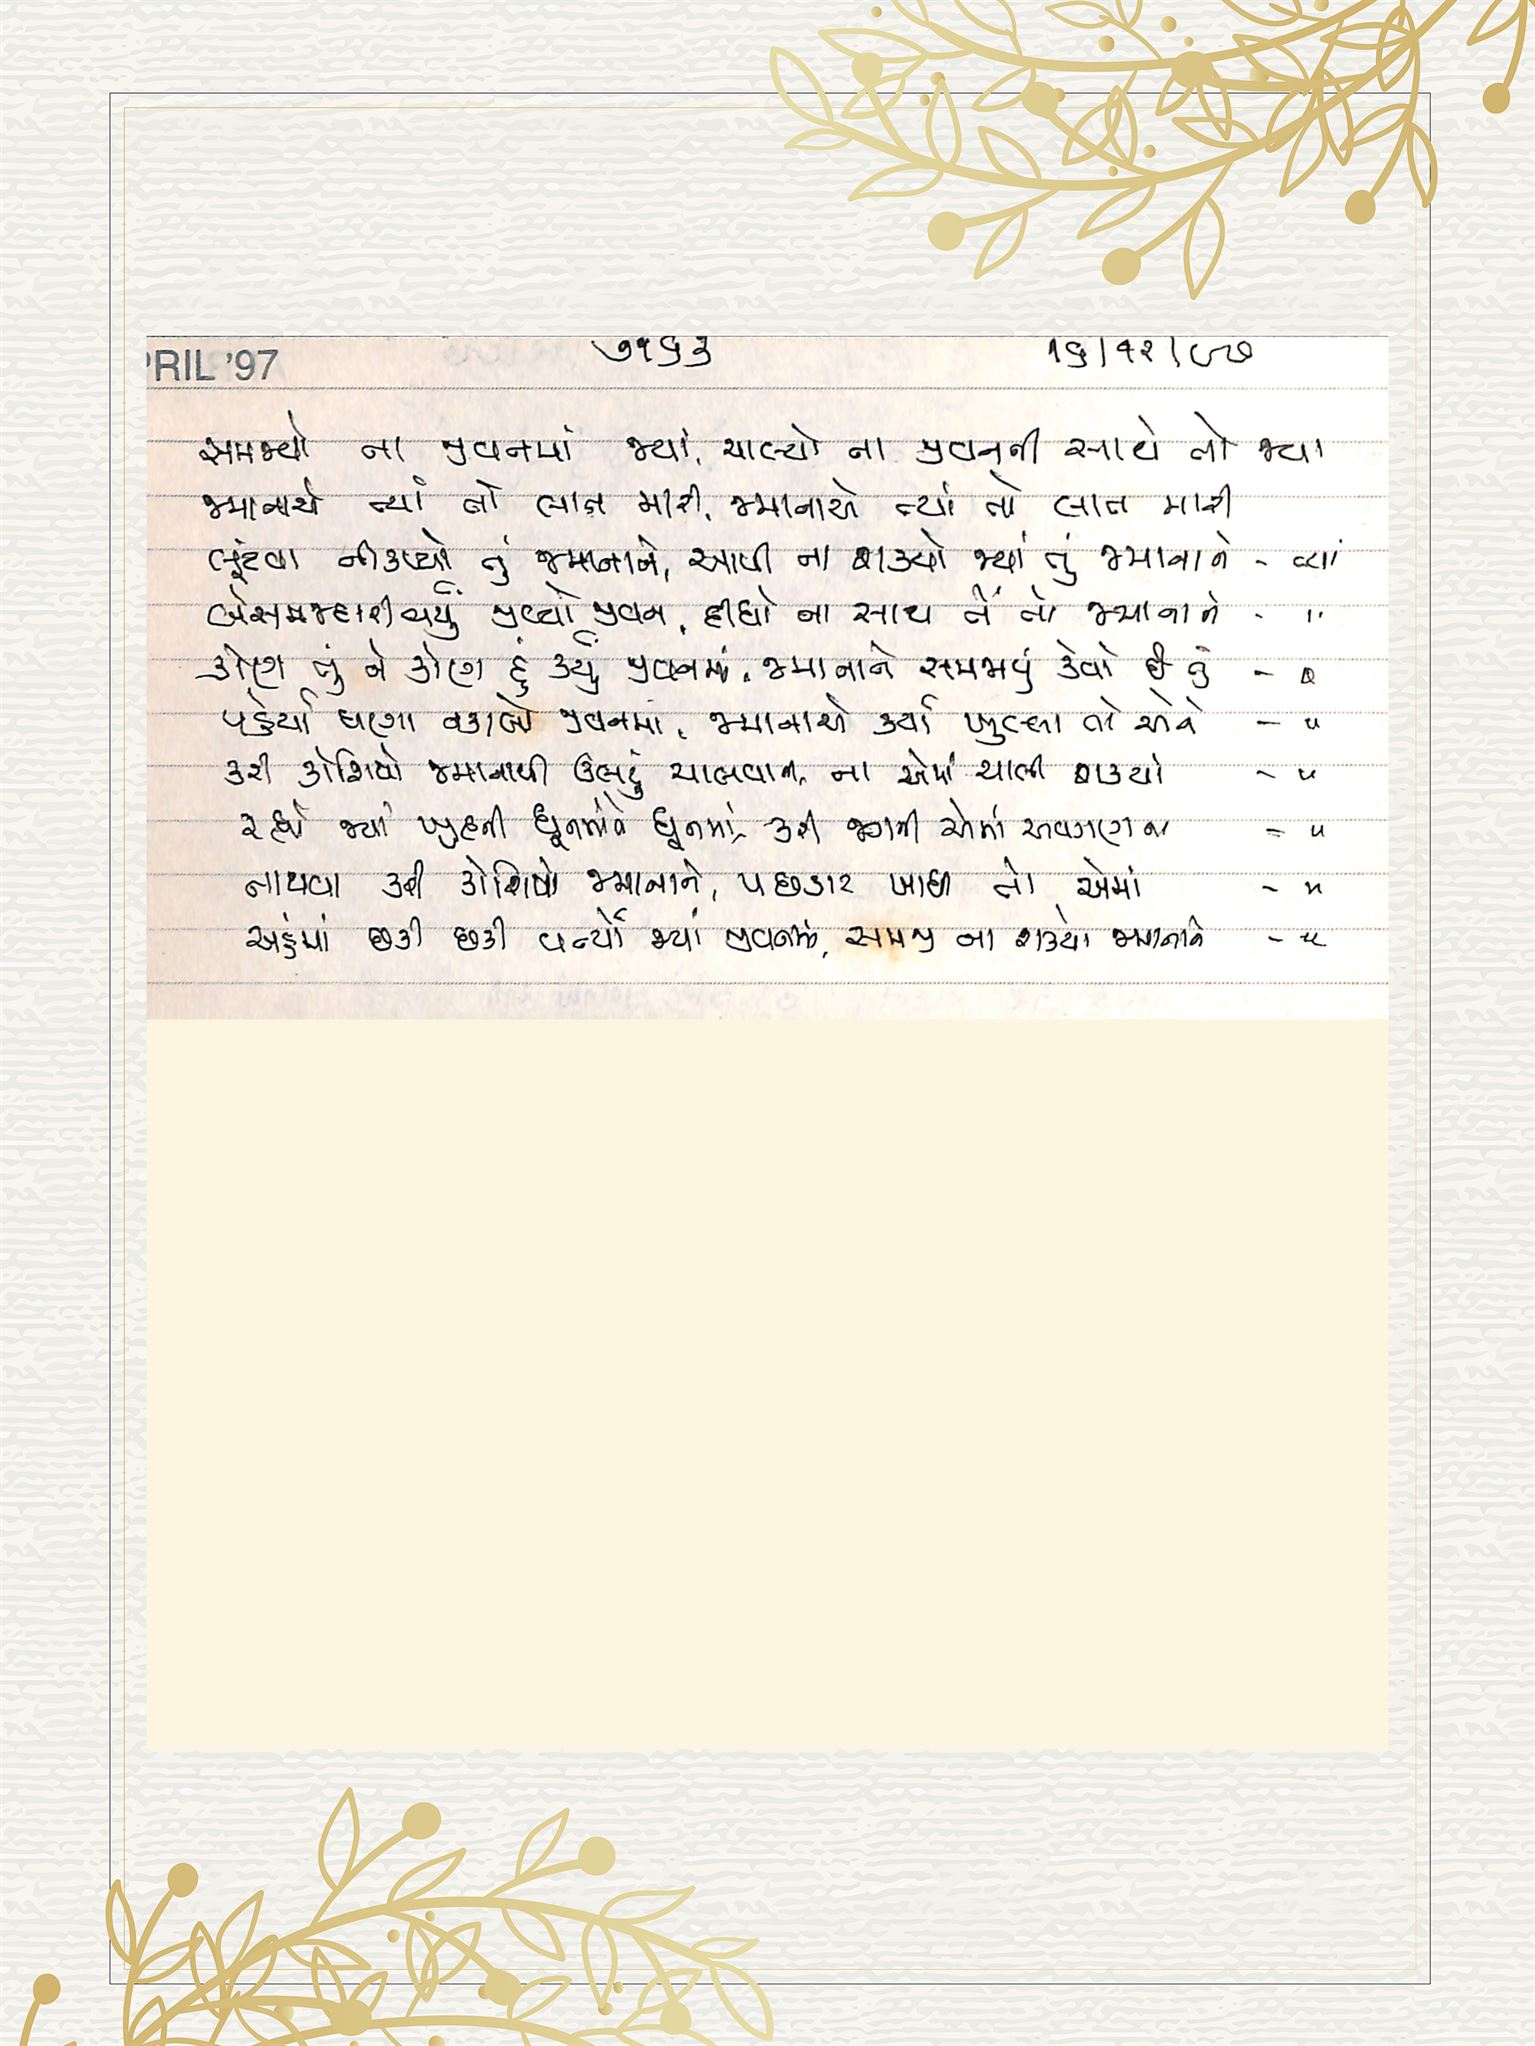 PRIL '97 ૭૧૬૩ ૧૬/૧૨/૯૭
સમજ્યો ના જીવનમાં જ્યાં, ચાલ્યો ના જીવનની સાથે તો જ્યાં
જમાનાએ ત્યાં તો લાત મારી, જમાનાએ ત્યાં તો લાત મારી
લૂંટવા નીકળ્યો તું જમાનાને, આપી ના શક્યો જ્યાં તું જમાનાને - ત્યાં
બેસમજદારીભર્યું જીવ્યો જીવન, દીધો ના સાથ તેં તો જમાનાને - "
કોણ તું ને કોણ હું કર્યું જીવનમાં, જમાનાને સમજાવ્યું કેવો છે તું - "
પહેર્યા ઘણા નકાબો જીવનમાં, જમાનાએ કર્યા ખુલ્લા તો એને - "
કરી કોશિશો જમાનાથી ઉલટું ચાલવાની, ના એમાં ચાલી શક્યો - "
રહ્યો જ્યાં ખુદની ધૂનમાં ને ધૂનમાં, કરી જગની એમાં અવગણના - "
નાથવા કરી કોશિશો જમાનાને, પછડાટ ખાધી તો એમાં - "
અહંમાં છકી છકી વર્ત્યો જ્યાં જીવનમાં, સમજી ના શક્યો જમાનાને - "